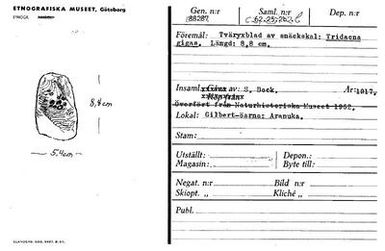 ETNOGRAFISKA MUSEET, Göteborg
8,8cm
5.4cm
Gen. n:r Saml. n:r Dep. n:r
Föremål: Tväryxblad av snäckskal: Tridacna
gigas. Längd: 8,8 cm.
Insaml av: S. Bock, År: 1917,
Överfört från Naturhistoriska Museet 1952,
Lokal: Gilbert-öarna: Aranuka,
Stam:
Utställt: Depon.:
Magasin: Byte till:
Negat. n:r Bild n:r
Skiopt. „ Kliché „
Publ.